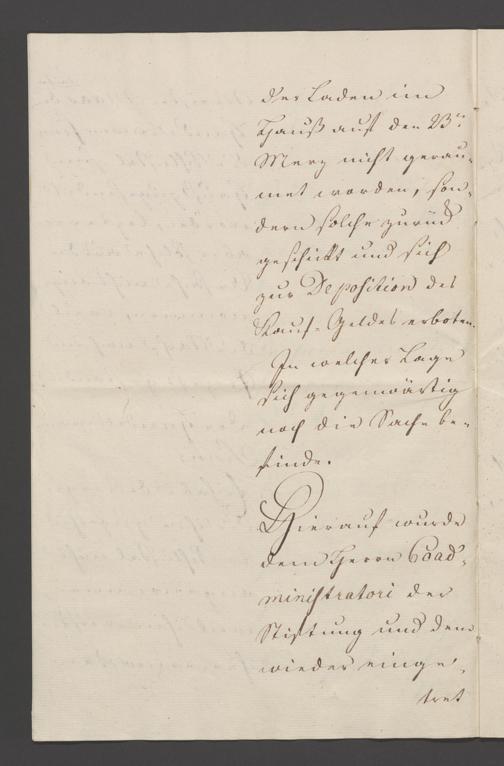 der Laden im
Hauß auf den 23ᵗ
Merz nicht geräu-
met worden, son-
dern solche zurück
geschickt und sich
zur Deposition des
Kauf-Geldes erboten.
In welcher Lage
sich gegenwärtig
noch die Sache be-
finde.
Hierauf wurde
dem Herrn Coad-
ministratori der
Stiftung und dem
wieder einge-
tret